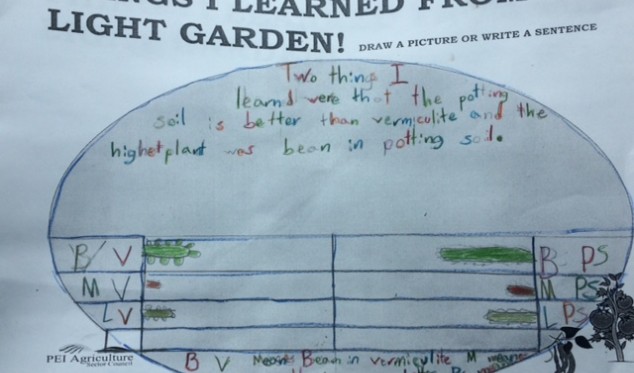 THINGS I LEARNED FROM
LIGHT GARDEN! DRAW A PICTURE OR WRITE A SENTENCE
Two things I
learnd were that the potting
soil is better than vermiculite and the
highet plant was bean in potting soil.
B/ V B PS
M V M PS
L V L PS
PEI Agriculture
Sector Council
B V Means Bean in vermiculite M means